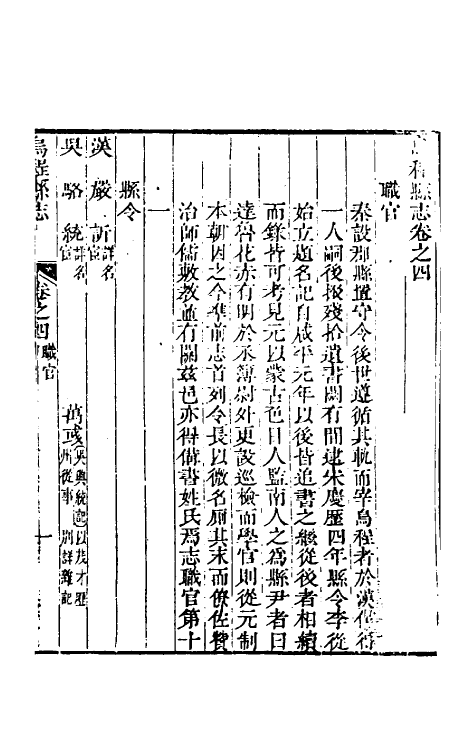 烏程縣志卷之四
職官
秦設郡縣置守令後世遵循其軌而宰烏程者於漢僅得
一人嗣後掇殘拾遺書闕有間逮宋慶歷四年縣令李從
始立題名記自咸平元年以後皆追書之繼從後者相續
而錄皆可考見元以蒙古色目人監南人之為縣尹者曰
達魯花赤有明於丞簿尉外更設巡檢而學官則從元制
本朝因之今準前志首列令長以微名厠其末而僚佐贊
治師儒敷教並有關茲也亦得備書姓氏焉志職官第十
一
縣令
漢 嚴訢詳名宦
吳 駱統詳名宦 萬彧吳興統記以茂才歷州從事 別詳雜記
烏程縣志 卷之四 職官 一